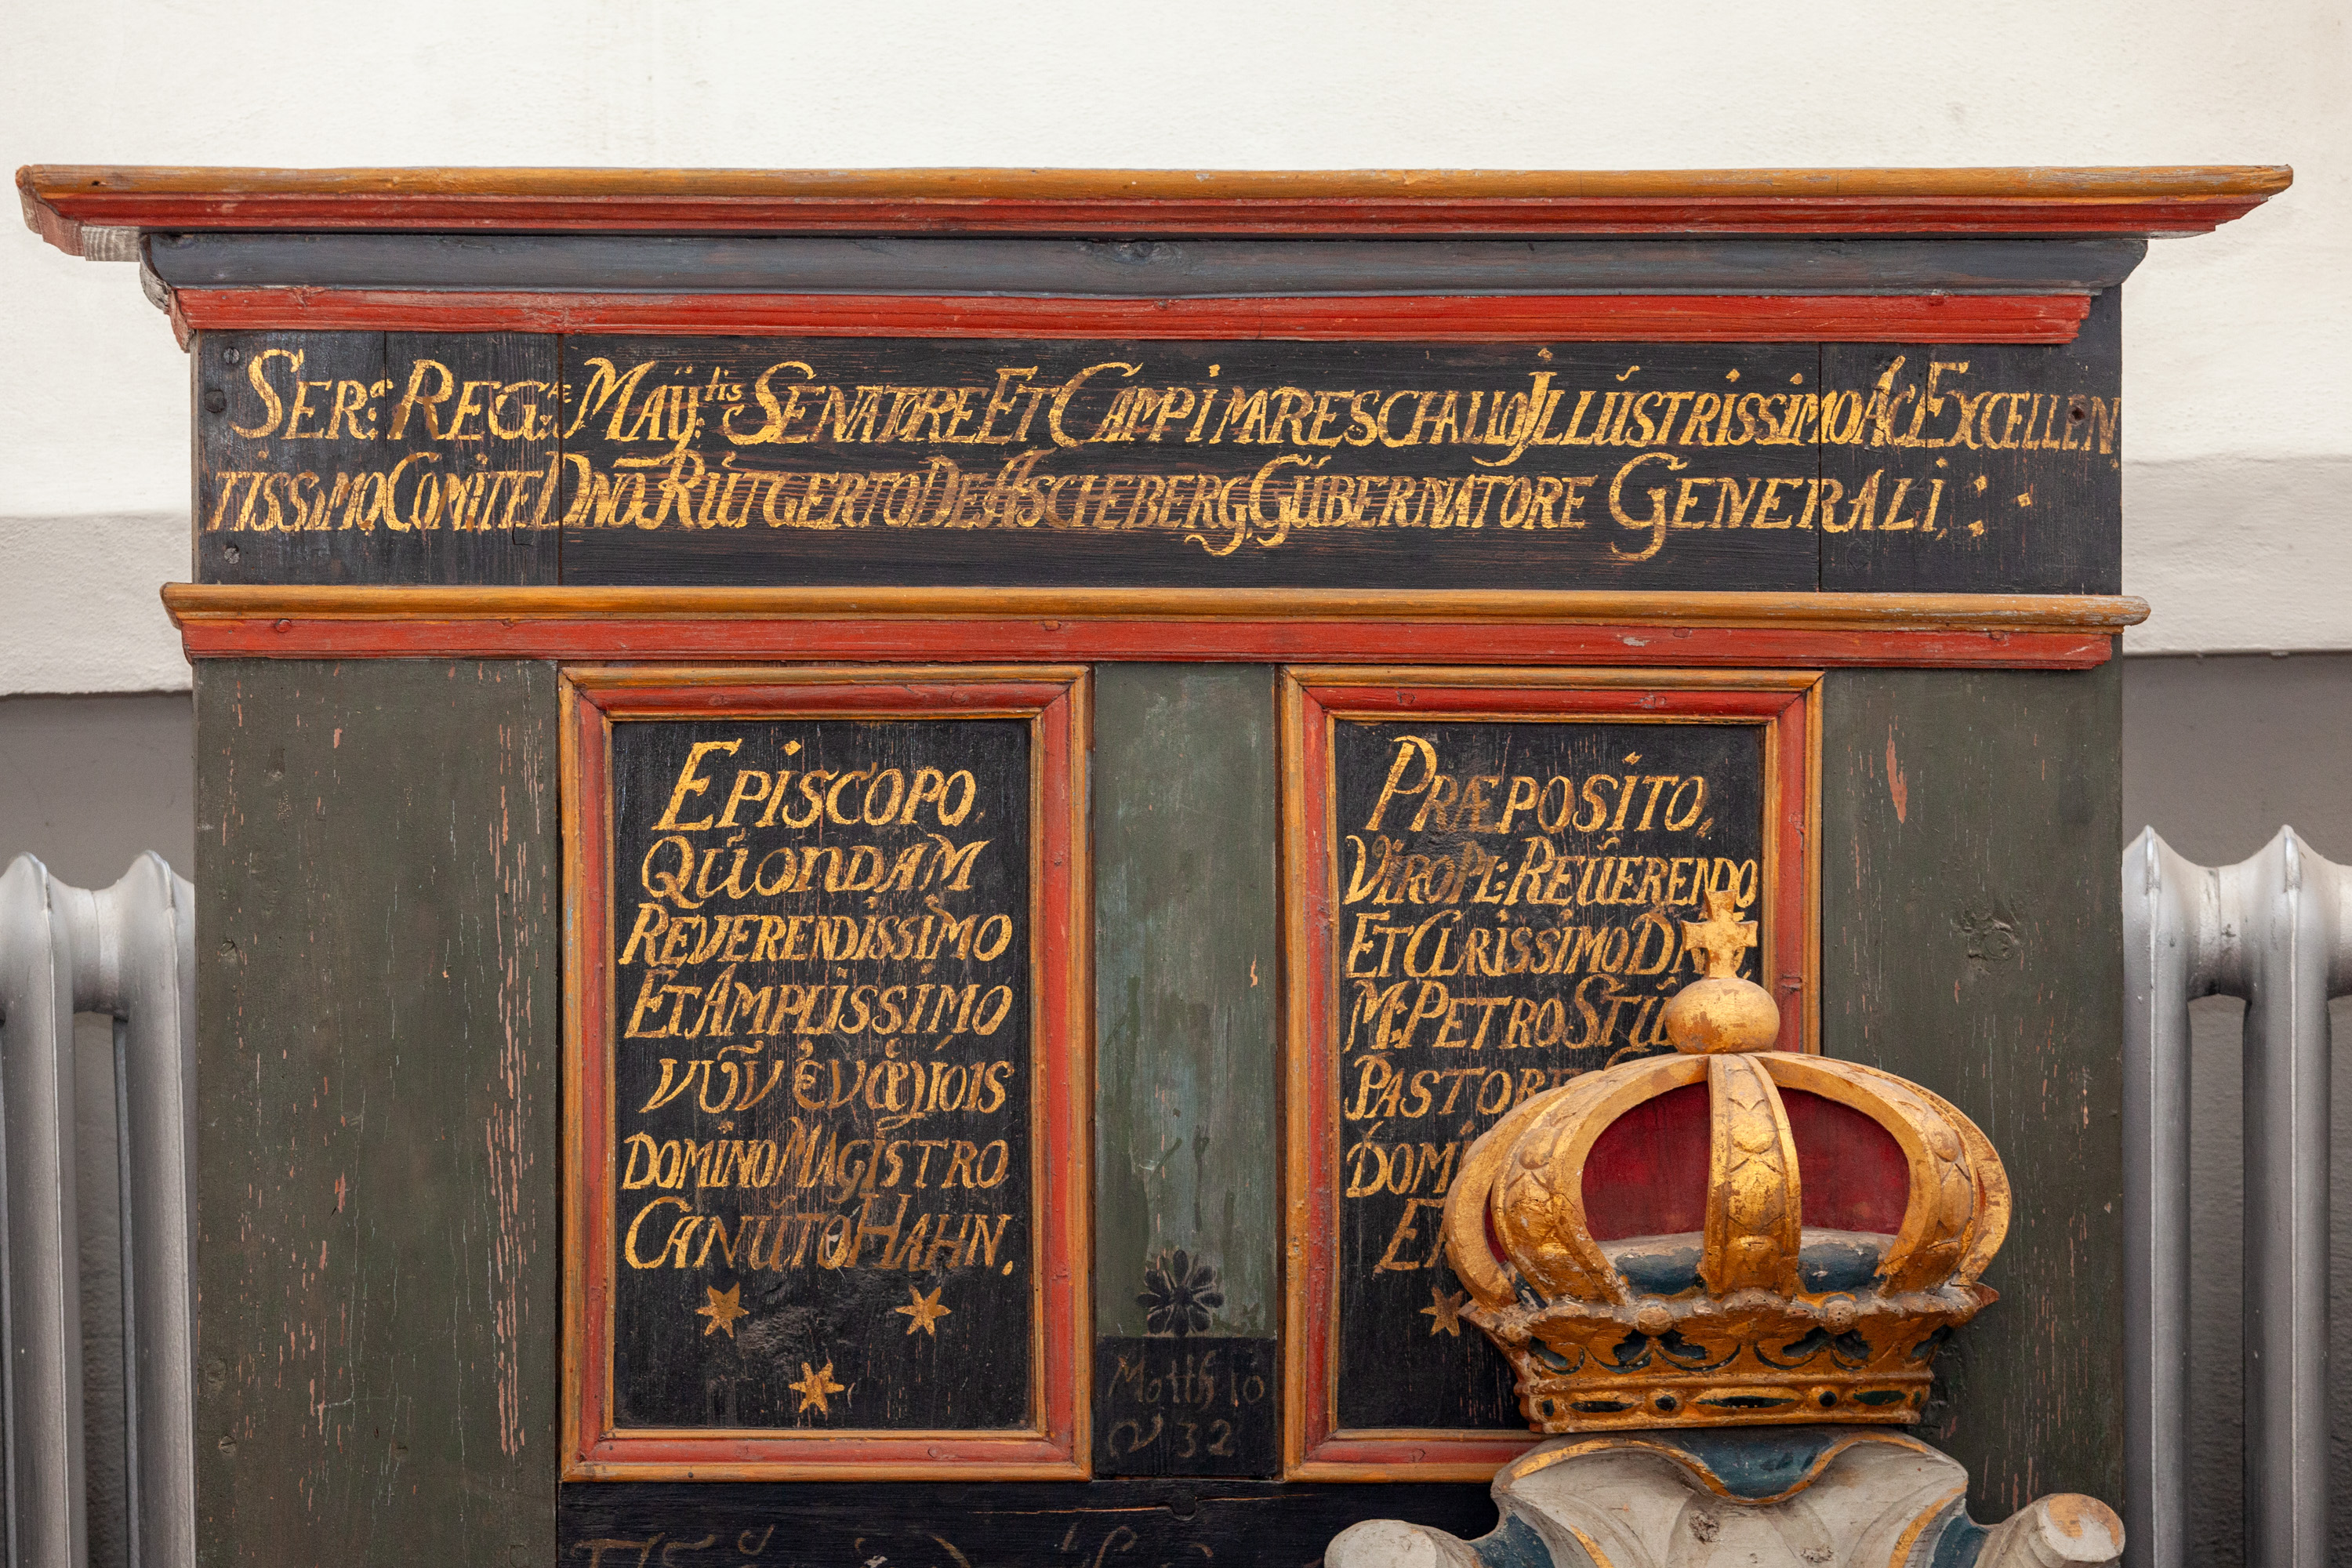 SER:æ REG:æ MAYtis SENATORE ET CAMPI MARESCHALLO ILLŬSTRISSIMO AC EXCELLEN
TISSIMO COMITE DNO RŬTGERTO DE ASCHEBERG, GŬBERNATORE GENERALI,
EPISCOPO,
QŬONDAM
REVERENDISSIMO
ET AMPLISSIMO
νῦν ἐν ἁγίοις
DOMINO MAGISTRO
CANŬTO HAHN.
PRÆPOSITO,
VIRO PL: REŬERENDO
ET CLARISSIMO
M: PETRO
Matth 10
V 32